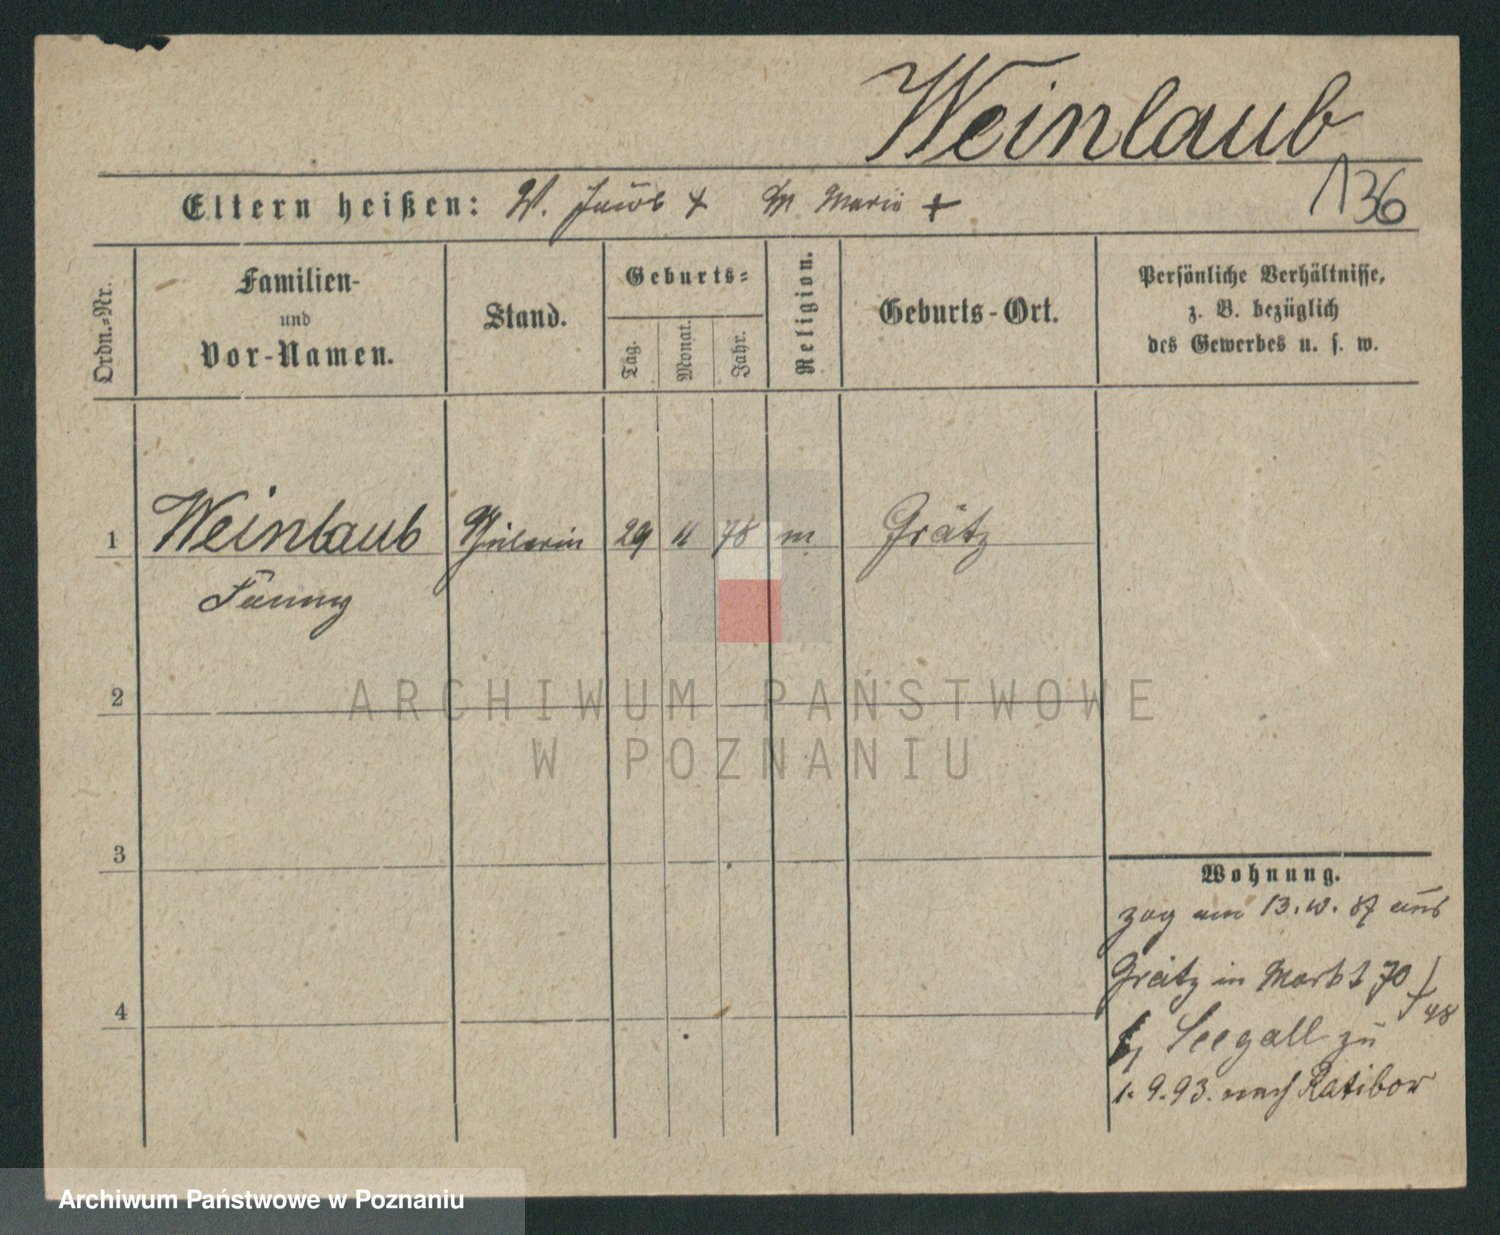 Weinlaub
136
Eltern heißen: W. Jacob + M Marie +
Ordn.-Nr.
Familien-
und
Vor-Namen.
Stand.
Geburts-
Tag.
Monat.
Jahr.
Religion.
Geburts-Ort.
Persönliche Verhältnisse,
z. B. bezüglich
des Gewerbes u. s. w.
1 Weinlaub Schülerin 29 11 78 m Grätz
Fanny
2
ARCHIWUM PAŃSTWOWE
W POZNANIU
3
4
Wohnung.
zog am 13. 87 aus
Grätz in Markt 70/48
Seegall zu
1. 9. 93. nach Ratibor
Archiwum Państwowe w Poznaniu